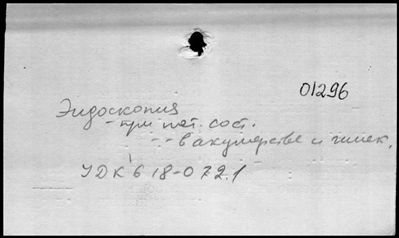 01296
Эндоскопия
- при пат. сост.
- - в акушерстве и гинек.
УДК 618-072.1